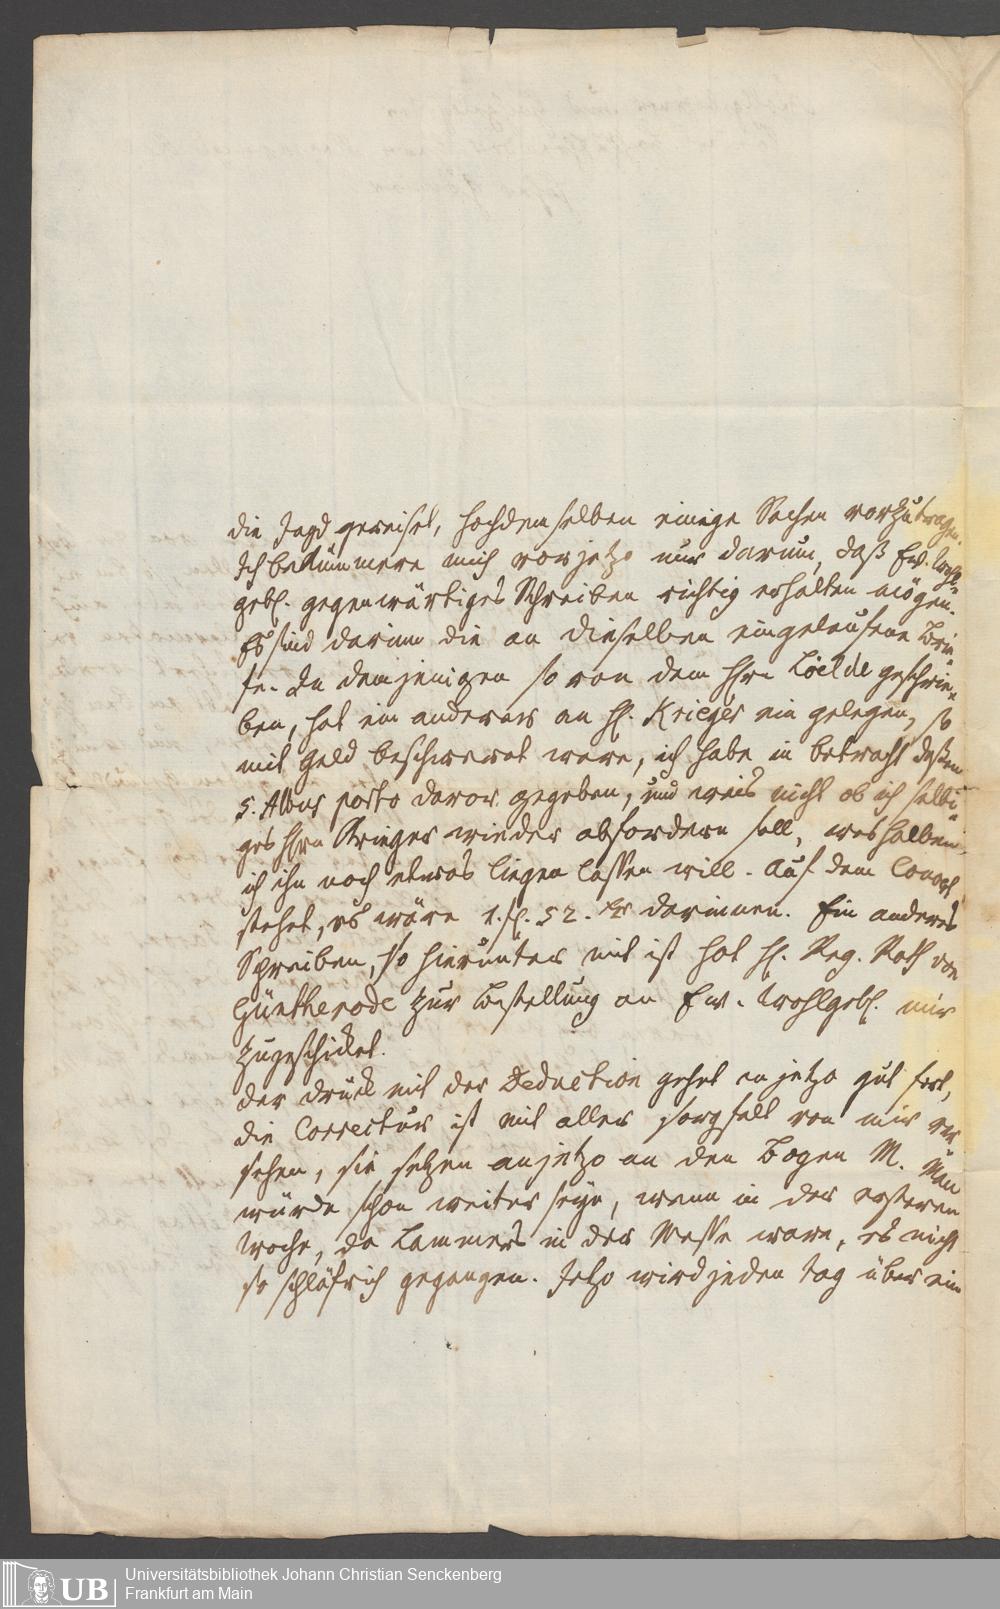 die Jagd gereiset, hochdemselben einige Sachen vorzutragen.
Ich bekümmere mich vorjetzo nur darum, daß Ew. Wohl-
gebl. gegenwärtiges Schreiben richtig erhalten mögen.
Es sind darinn die an dieselben eingelaufene Brie-
fe. In demjenigen so von dem Hhrn Loelde geschrie-
ben, hat ein anderes an H. Krieger ein gelegen, so
mit Geld beschweret ware, ich habe in betracht deßen
5. Albus porto davor gegeben, und weis nicht ob ich selbi-
ges Hhrn Krieger wieder abfordern soll, weshalben
ich ihn noch etwas liegen laßen will. Auf dem Couvert
stehet, es wäre 1. fl. 52. xr darinnen. Ein anderes
Schreiben, so hierunter mit ist hat H. Reg. Rath von
Güntherode zur Bestellung an Ew. Wohlgebl. mir
zugeschicket.
Der Druck mit der Deduction gehet an jetzo gut fort,
die Correctur ist mit aller sorgfalt von mir ver-
sehen, sie setzen anjetzo an den Bogen M. Man
würde schon weiter seyn, wenn in der ersteren
Woche, da Lammers in der Messe ware, es nicht
so schläfrich gegangen. Jetzo wird jeden Tag über ein
UB
Universitätsbibliothek Johann Christian Senckenberg
Frankfurt am Main